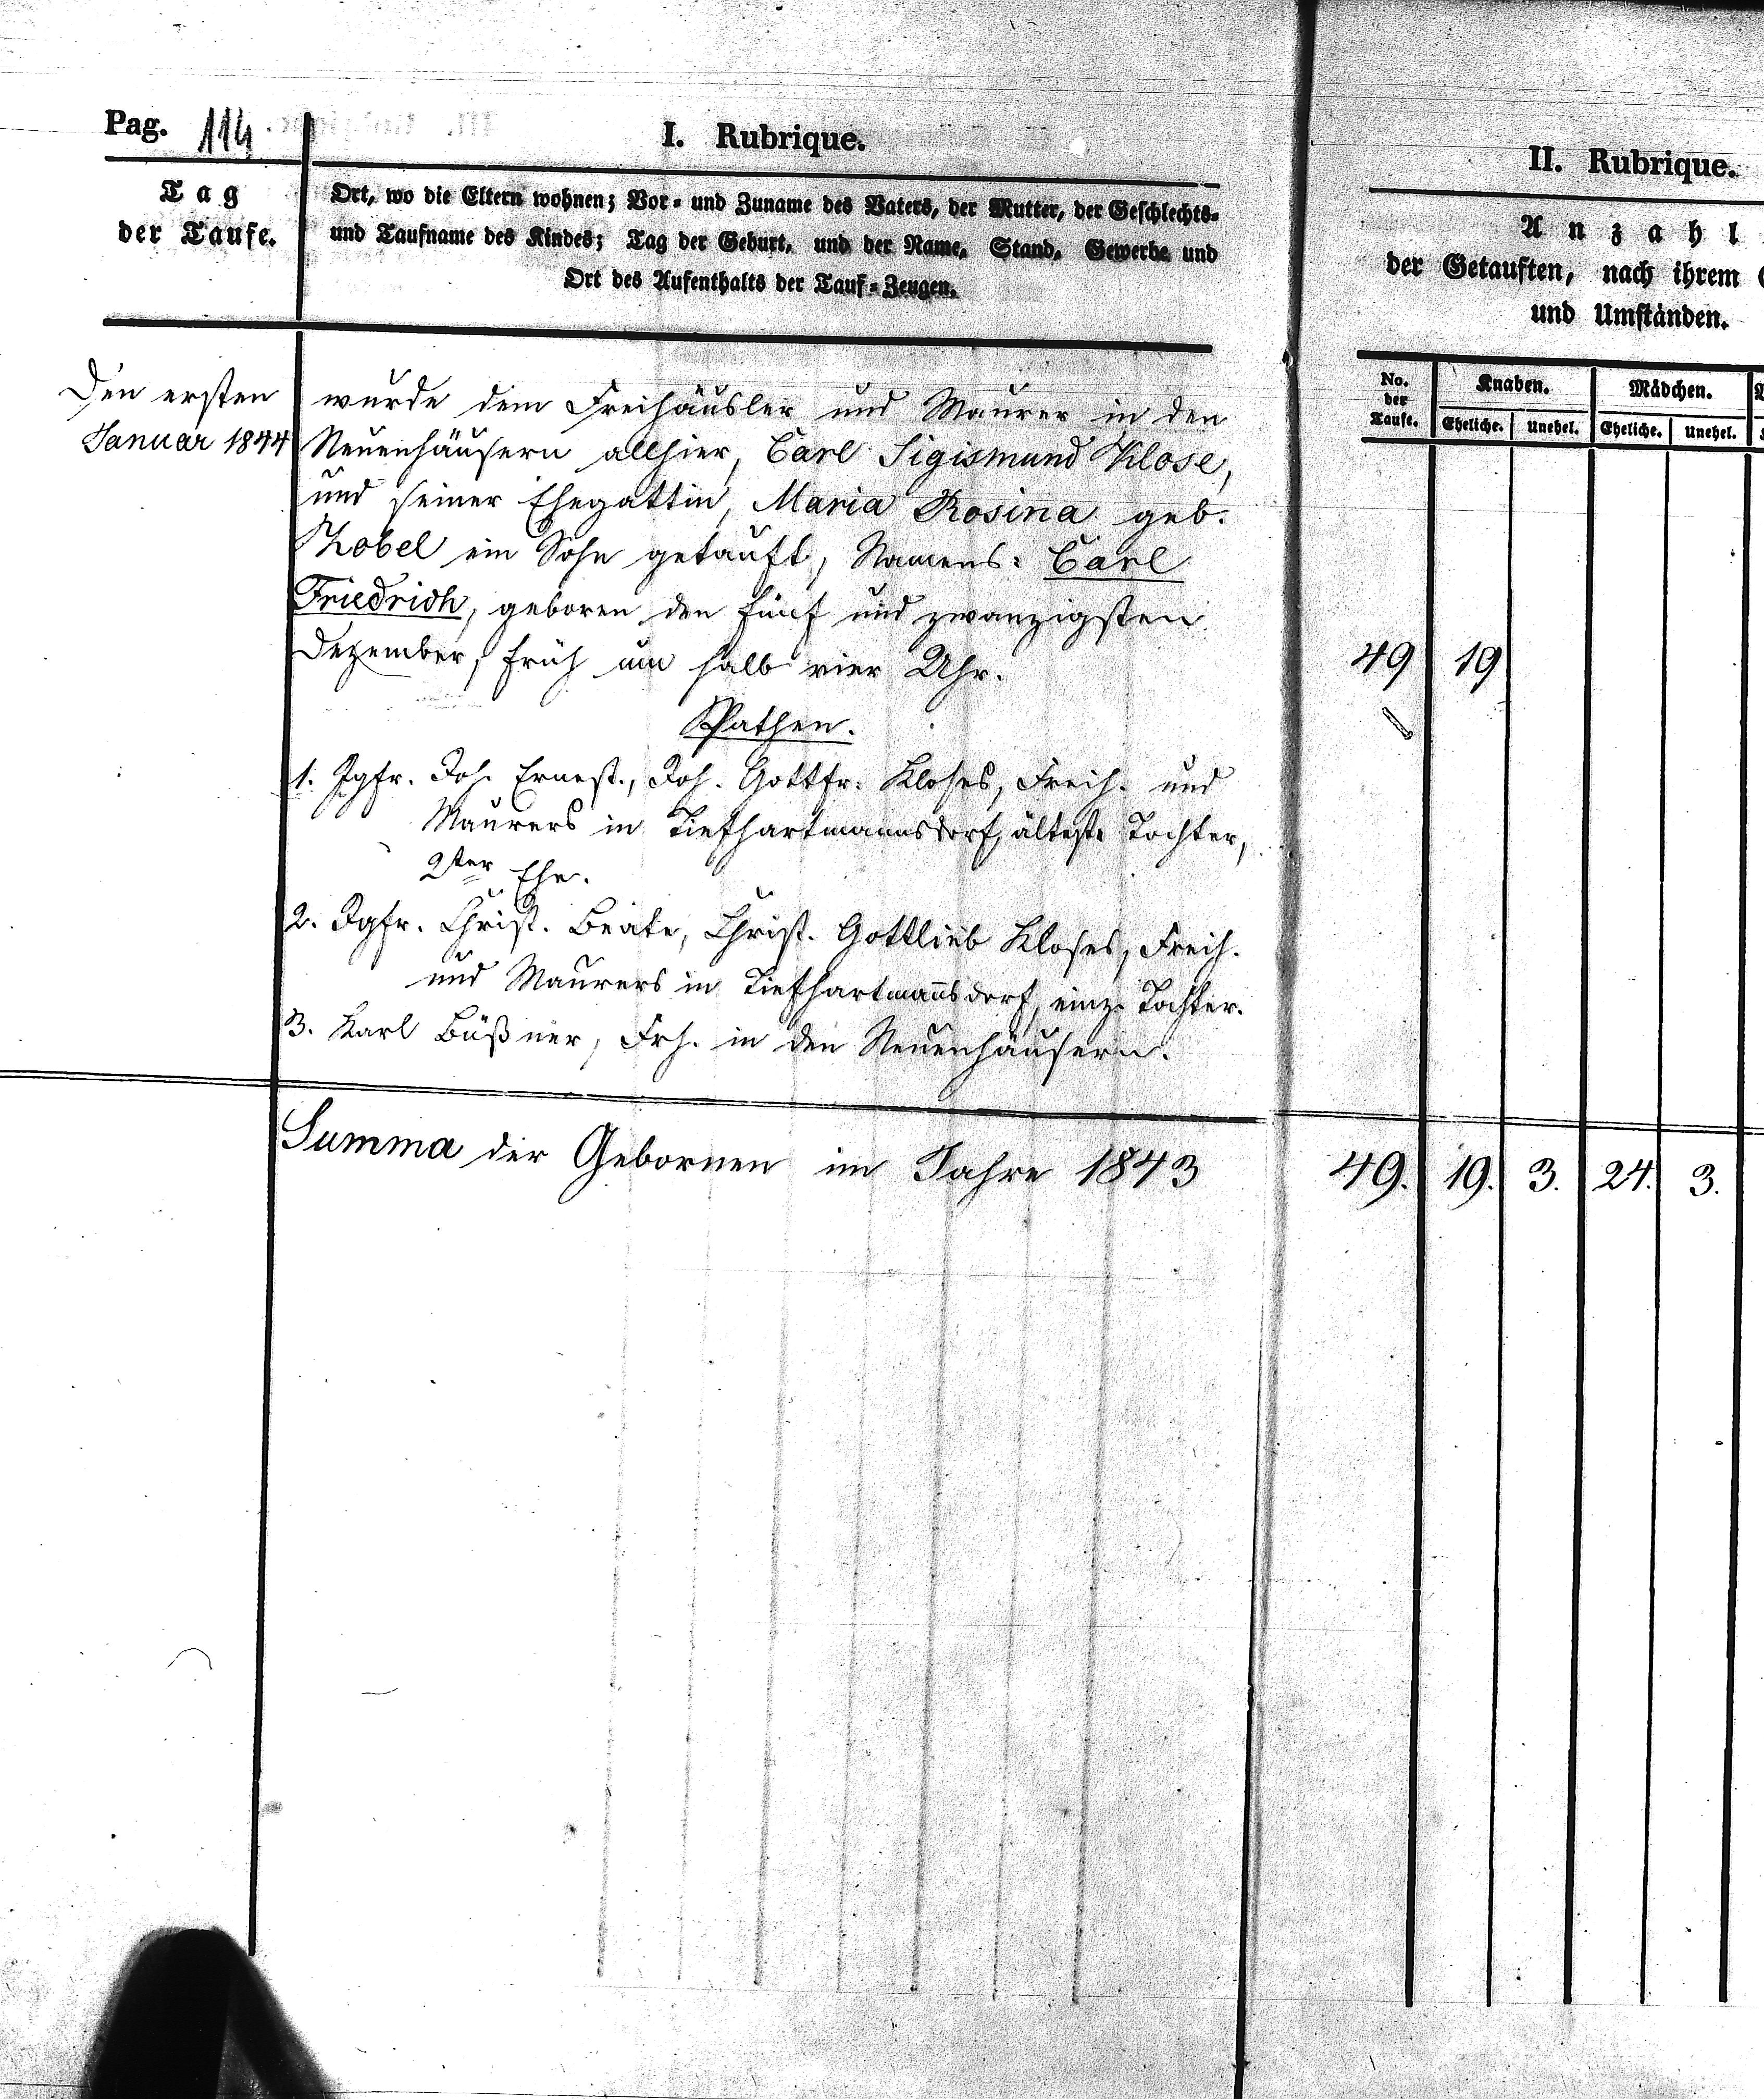 Pag. 114
I. Rubrique.
Tag
der Taufe.
Ort, wo die Eltern wohnen; Vor- und Zuname des Vaters, der Mutter, der Geschlechts-
und Taufname des Kindes; Tag der Geburt, und der Name, Stand, Gewerbe und
Ort des Aufenthalts der Tauf-Zeugen.
Den ersten
Januar 1844
wurde dem Freihäusler und Maurer in den
Neuenhäusern allhier, Carl Sigismund Klose,
und seiner Ehegattin, Maria Rosina geb.
Zobel ein Sohn getauft, Namens: Carl
Friedrich, geboren den fünf und zwanzigsten
Dezember, früh um halb vier Uhr.
Pathen.
1. Jgfr. Joh. Ernest., Joh. Gottfr. Kloses, Freih. und
Maurers in Tiefhartmannsdorf, älteste Tochter,
2ter Ehe.
2. Jgfr. Christ. Beate, Christ. Gottlieb Kloses, Freih.
und Maurers in Tiefhartmañsdorf, einz. Tochter.
3. Karl Büßner, Frh. in den Neuenhäusern.
Summa der Gebornen im Jahre 1843
II. Rubrique.
Anzahl
der Getauften, nach ihrem
und Umständen.
No. der Taufe. Knaben. Mädchen.
Eheliche. Unehel. Eheliche. Unehel.
49 19
49. 19. 3. 24. 3.